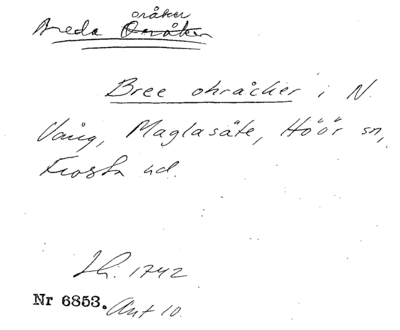 oråker
Breda Onåker
Bree ohråcker i N.
Vång, Maglasäte, Höör sn,
Frosta hd.
Lh. 1742
Nr 6853. Akt 10.